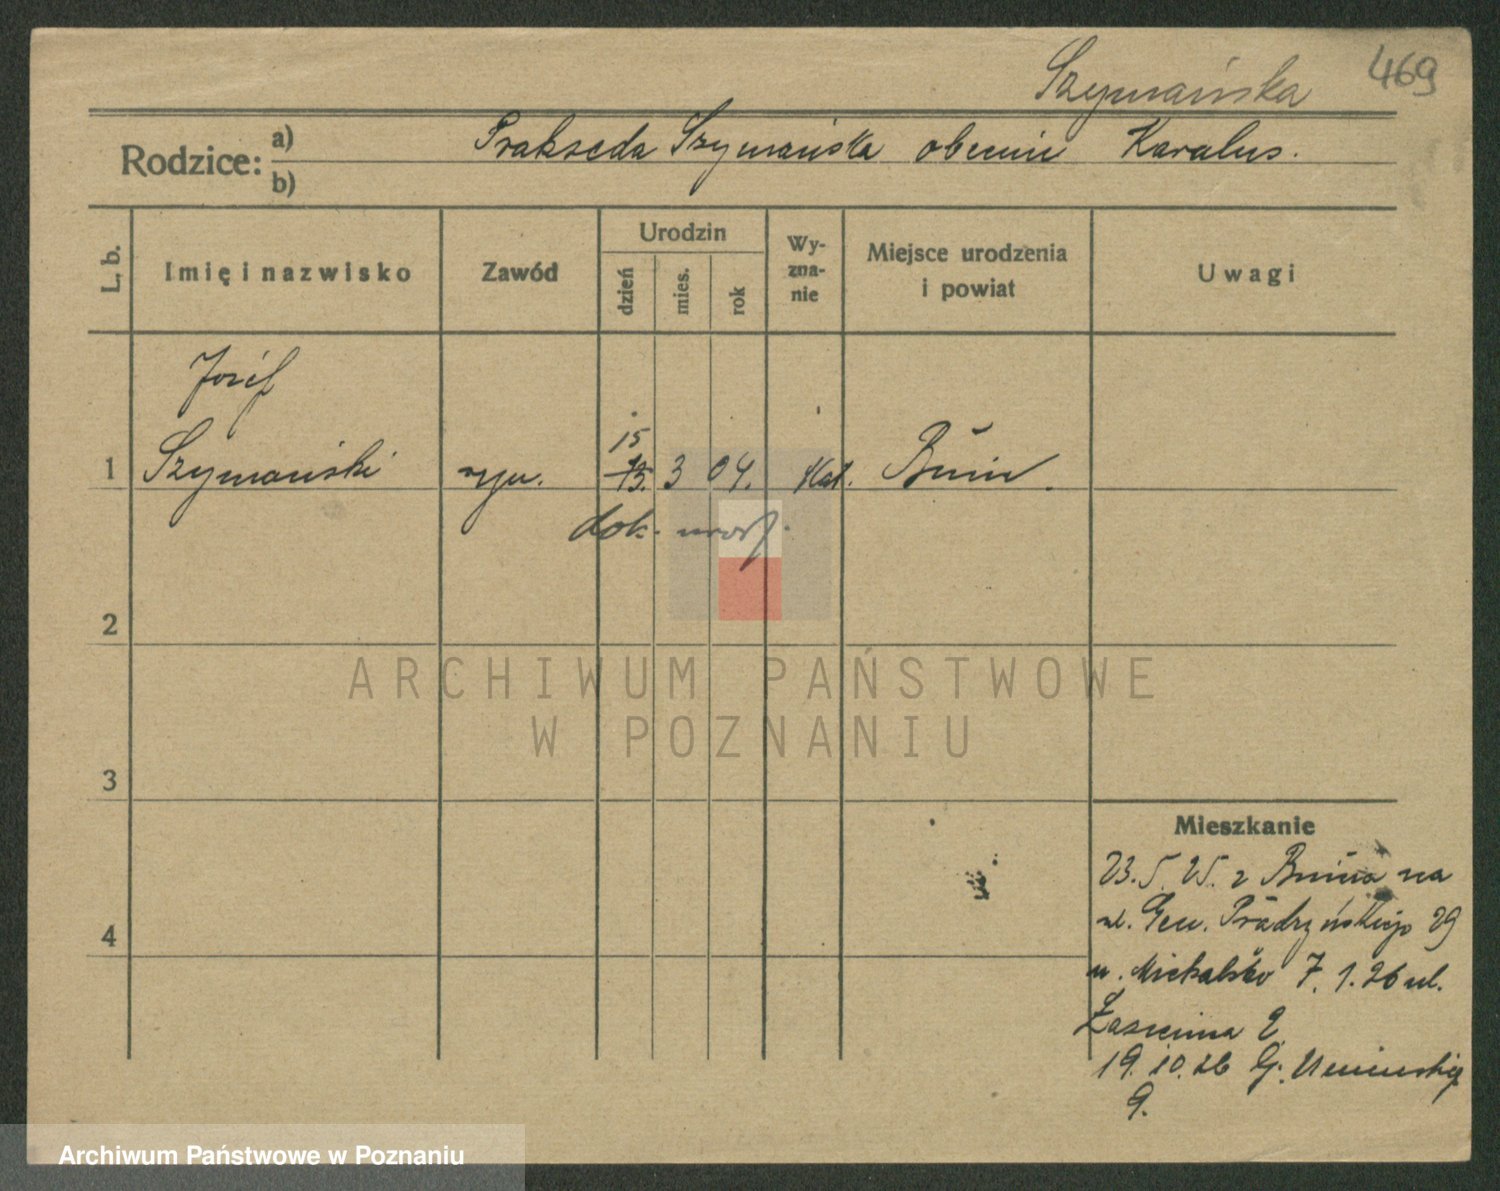 Szymańska 469
Rodzice: a) Prakseda Szymańska obecnie Karalus.
b)
L. b. Imię i nazwisko Zawód Urodzin dzień mies. rok Wy-zna-nie Miejsce urodzenia i powiat Uwagi
Józef
15
1 Szymański 13. 3 04. Kat. Bnin.
dok. urodz.
2
ARCHIWUM PAŃSTWOWE
W POZNANIU
3
Mieszkanie
23.5.25. z Bnina na
ul. Gen. Prądzyńskiego 29
4
7.1.26 ul.
2
19.10.26 G. Umińskiego
9.
Archiwum Państwowe w Poznaniu